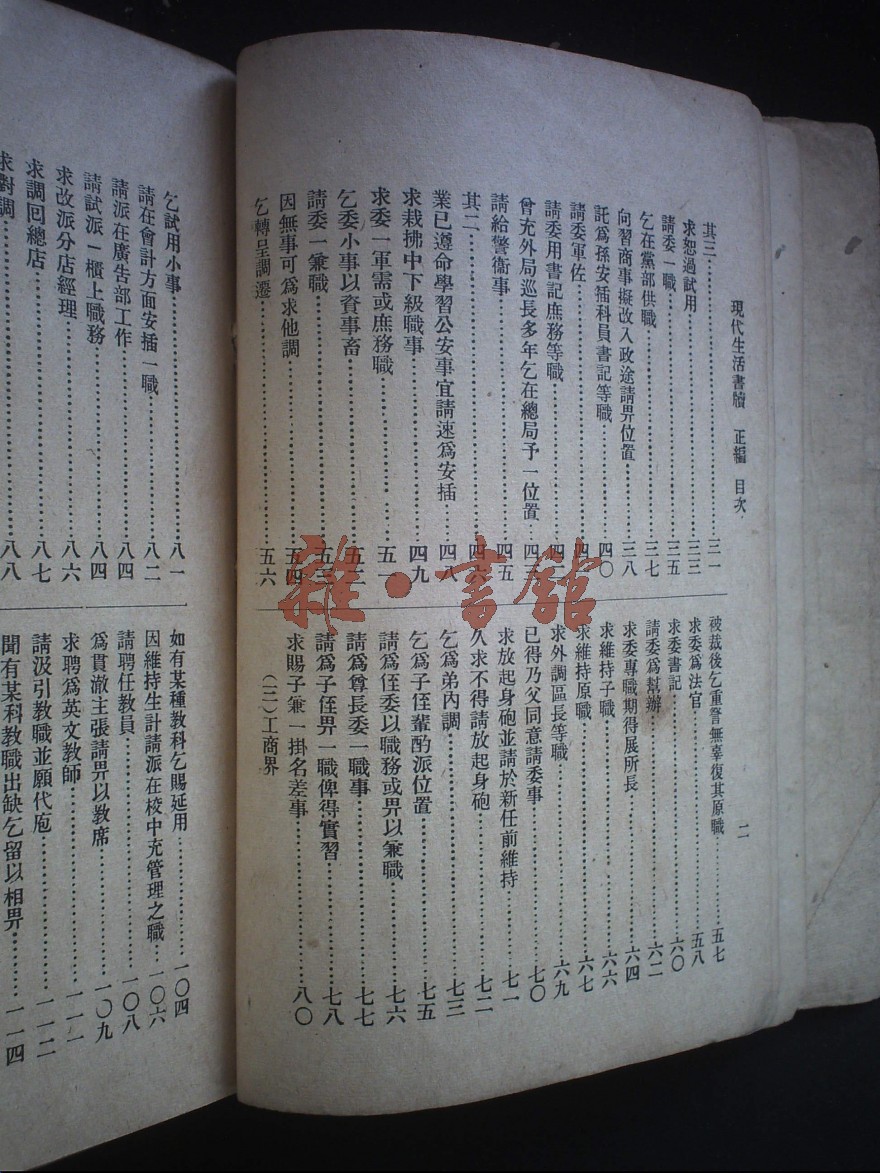 現代生活書牘 正編 目次
二
其三…………三一
求恕過試用…………三三
請委一職…………三五
乞在黨部供職…………三七
向習商事擬改入政途請畀位置…………三八
託爲孫安插科員書記等職…………四〇
請委軍佐…………四
請委用書記庶務等職…………四
曾充外局巡長多年乞在總局予一位置…………四
請給警衞事…………四五
其二…………四六
業已遵命學習公安事宜請速爲安插…………四八
求栽拂中下級職事…………四九
求委一軍需或庶務職…………五一
乞委小事以資事畜…………五二
請委一兼職…………五三
因無事可爲求他調…………五四
乞轉呈調遷…………五六
被裁後乞重詧無辜復其原職…………五七
求委爲法官…………五八
求委書記…………六〇
請委爲幫辦…………六二
求委專職期得展所長…………六四
求維持子職…………六六
求維持原職…………六七
求外調區長等職…………六九
已得乃父同意請委事…………七〇
求放起身砲並請於新任前維持…………七一
久求不得請放起身砲…………七二
乞爲弟內調…………七三
乞爲子侄輩酌派位置…………七五
請爲侄委以職務或畀以兼職…………七六
請爲尊長委一職事…………七七
請爲子侄畀一職俾得實習…………七八
求賜子兼一掛名差事…………八〇
(三)工商界
乞試用小事…………八一
請在會計方面安插一職…………八二
請派在廣告部工作…………八四
請試派一櫃上職務…………八四
求改派分店經理…………八六
求調回總店…………八七
求對調…………八八
如有某種教科乞賜延用…………一〇四
因維持生計請派在校中充管理之職…………一〇六
請聘任教員…………一〇八
爲貫澈主張請畀以教席…………一〇九
求聘爲英文教師…………一一一
請汲引教職並願代庖…………一一二
聞有某科教職出缺乞留以相畀…………一一四
雜·書館